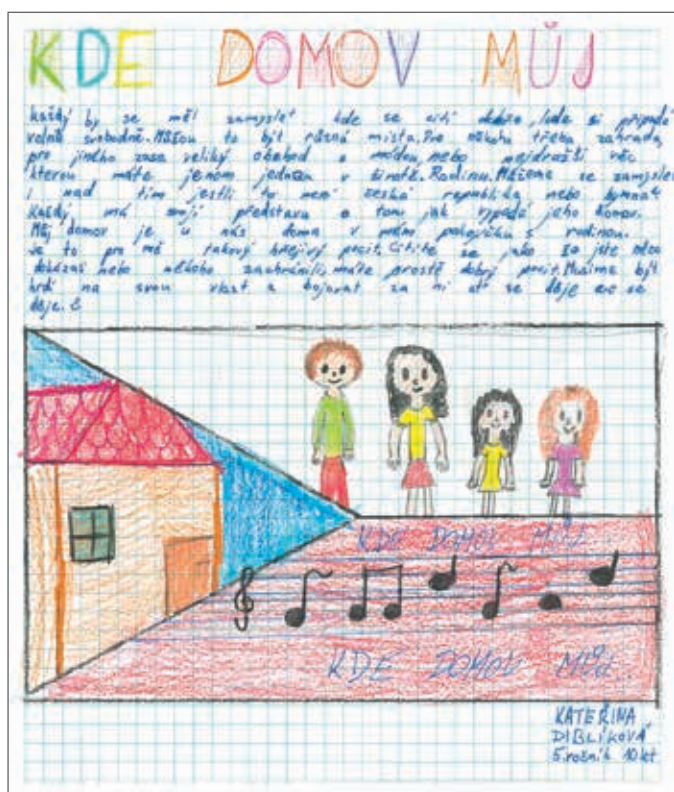 KDE DOMOV MŮJ
Každý by se měl zamyslet kde se cítí dobře, kde si připadá
volně svobodně. Můžou to být různá místa. Pro někoho třeba zahrada,
pro jiného zasa veliký obchod s módou, nebo nejdražší věc
kterou máte jenom jednou v životě. Rodinu. Můžeme se zamyslet
i nad tím jestli to není česká republika nebo
Každý má svojí představu o tom jak vypadá jeho domov.
Můj domov je u nás doma v mém pokojíčku s rodinou.
Je to pro mě takový hřejivý pocit. Cítíte se jako by jste něco
dokázal nebo někoho zachránili, máte prostě dobrý pocit. Musíme být
hrdí na svou vlast a bojovat za ni ať se děje co se
děje.
KDE DOMOV MŮJ
KDE DOMOV MŮJ
KATEŘINA
DIBLÍKOVÁ
5.ročník 10let